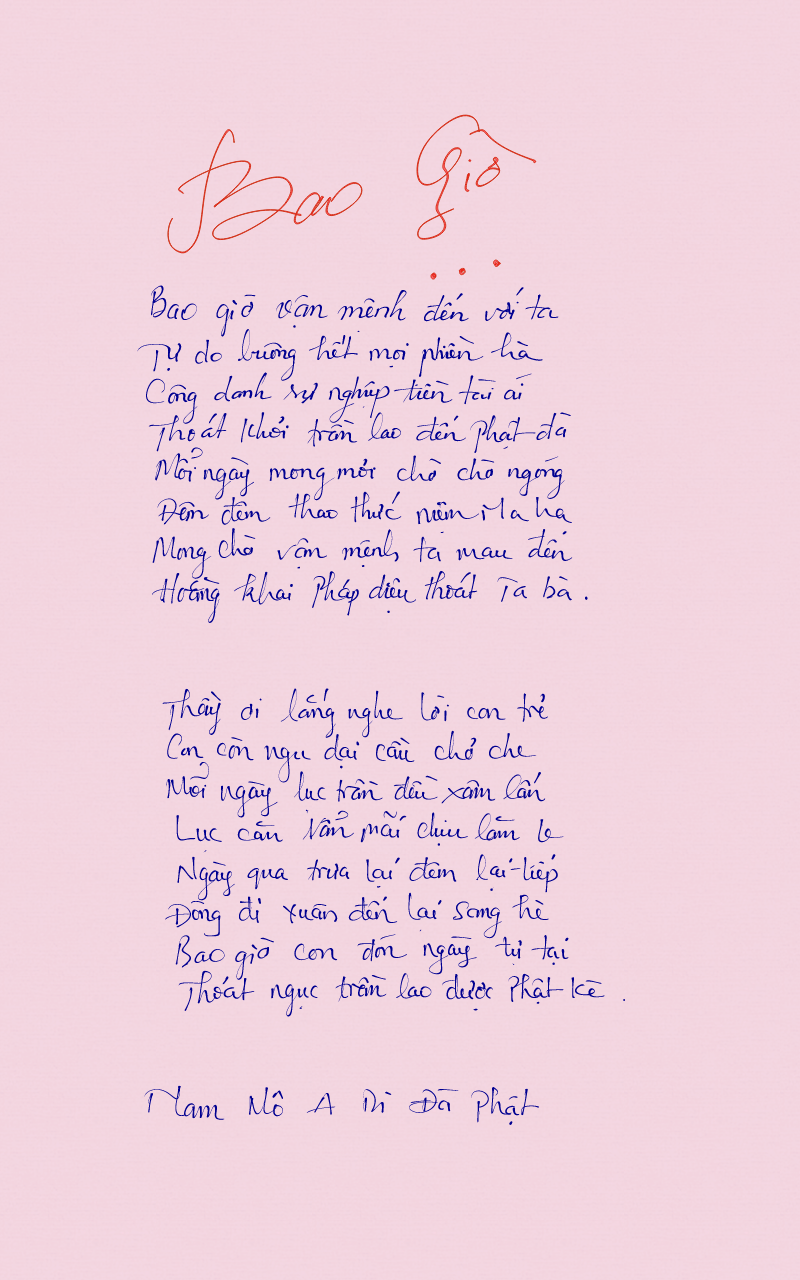 Bao Giờ
...
Bao giờ vận mệnh đến với ta
Tự do buông hết mọi phiền hà
Công danh sự nghiệp tiền tài ái
Thoát khỏi trần lao đến Phật đà
Mỗi ngày mong mỏi chờ chờ ngóng
Đêm đêm thao thức niệm Ma ha
Mong chờ vận mệnh ta mau đến
Hoằng khai Pháp diệu thoát Ta bà.
Thầy ơi lắng nghe lời con trẻ
Con còn ngu dại cần chở che
Mỗi ngày lục trần đều xâm lấn
Lục căn vẫn mãi chịu lăm le
Ngày qua trưa lại đêm lại tiếp
Đông đi xuân đến lại sang hè
Bao giờ con đón ngày tự tại
Thoát ngục trần lao được Phật kề.
Nam Mô A Di Đà Phật